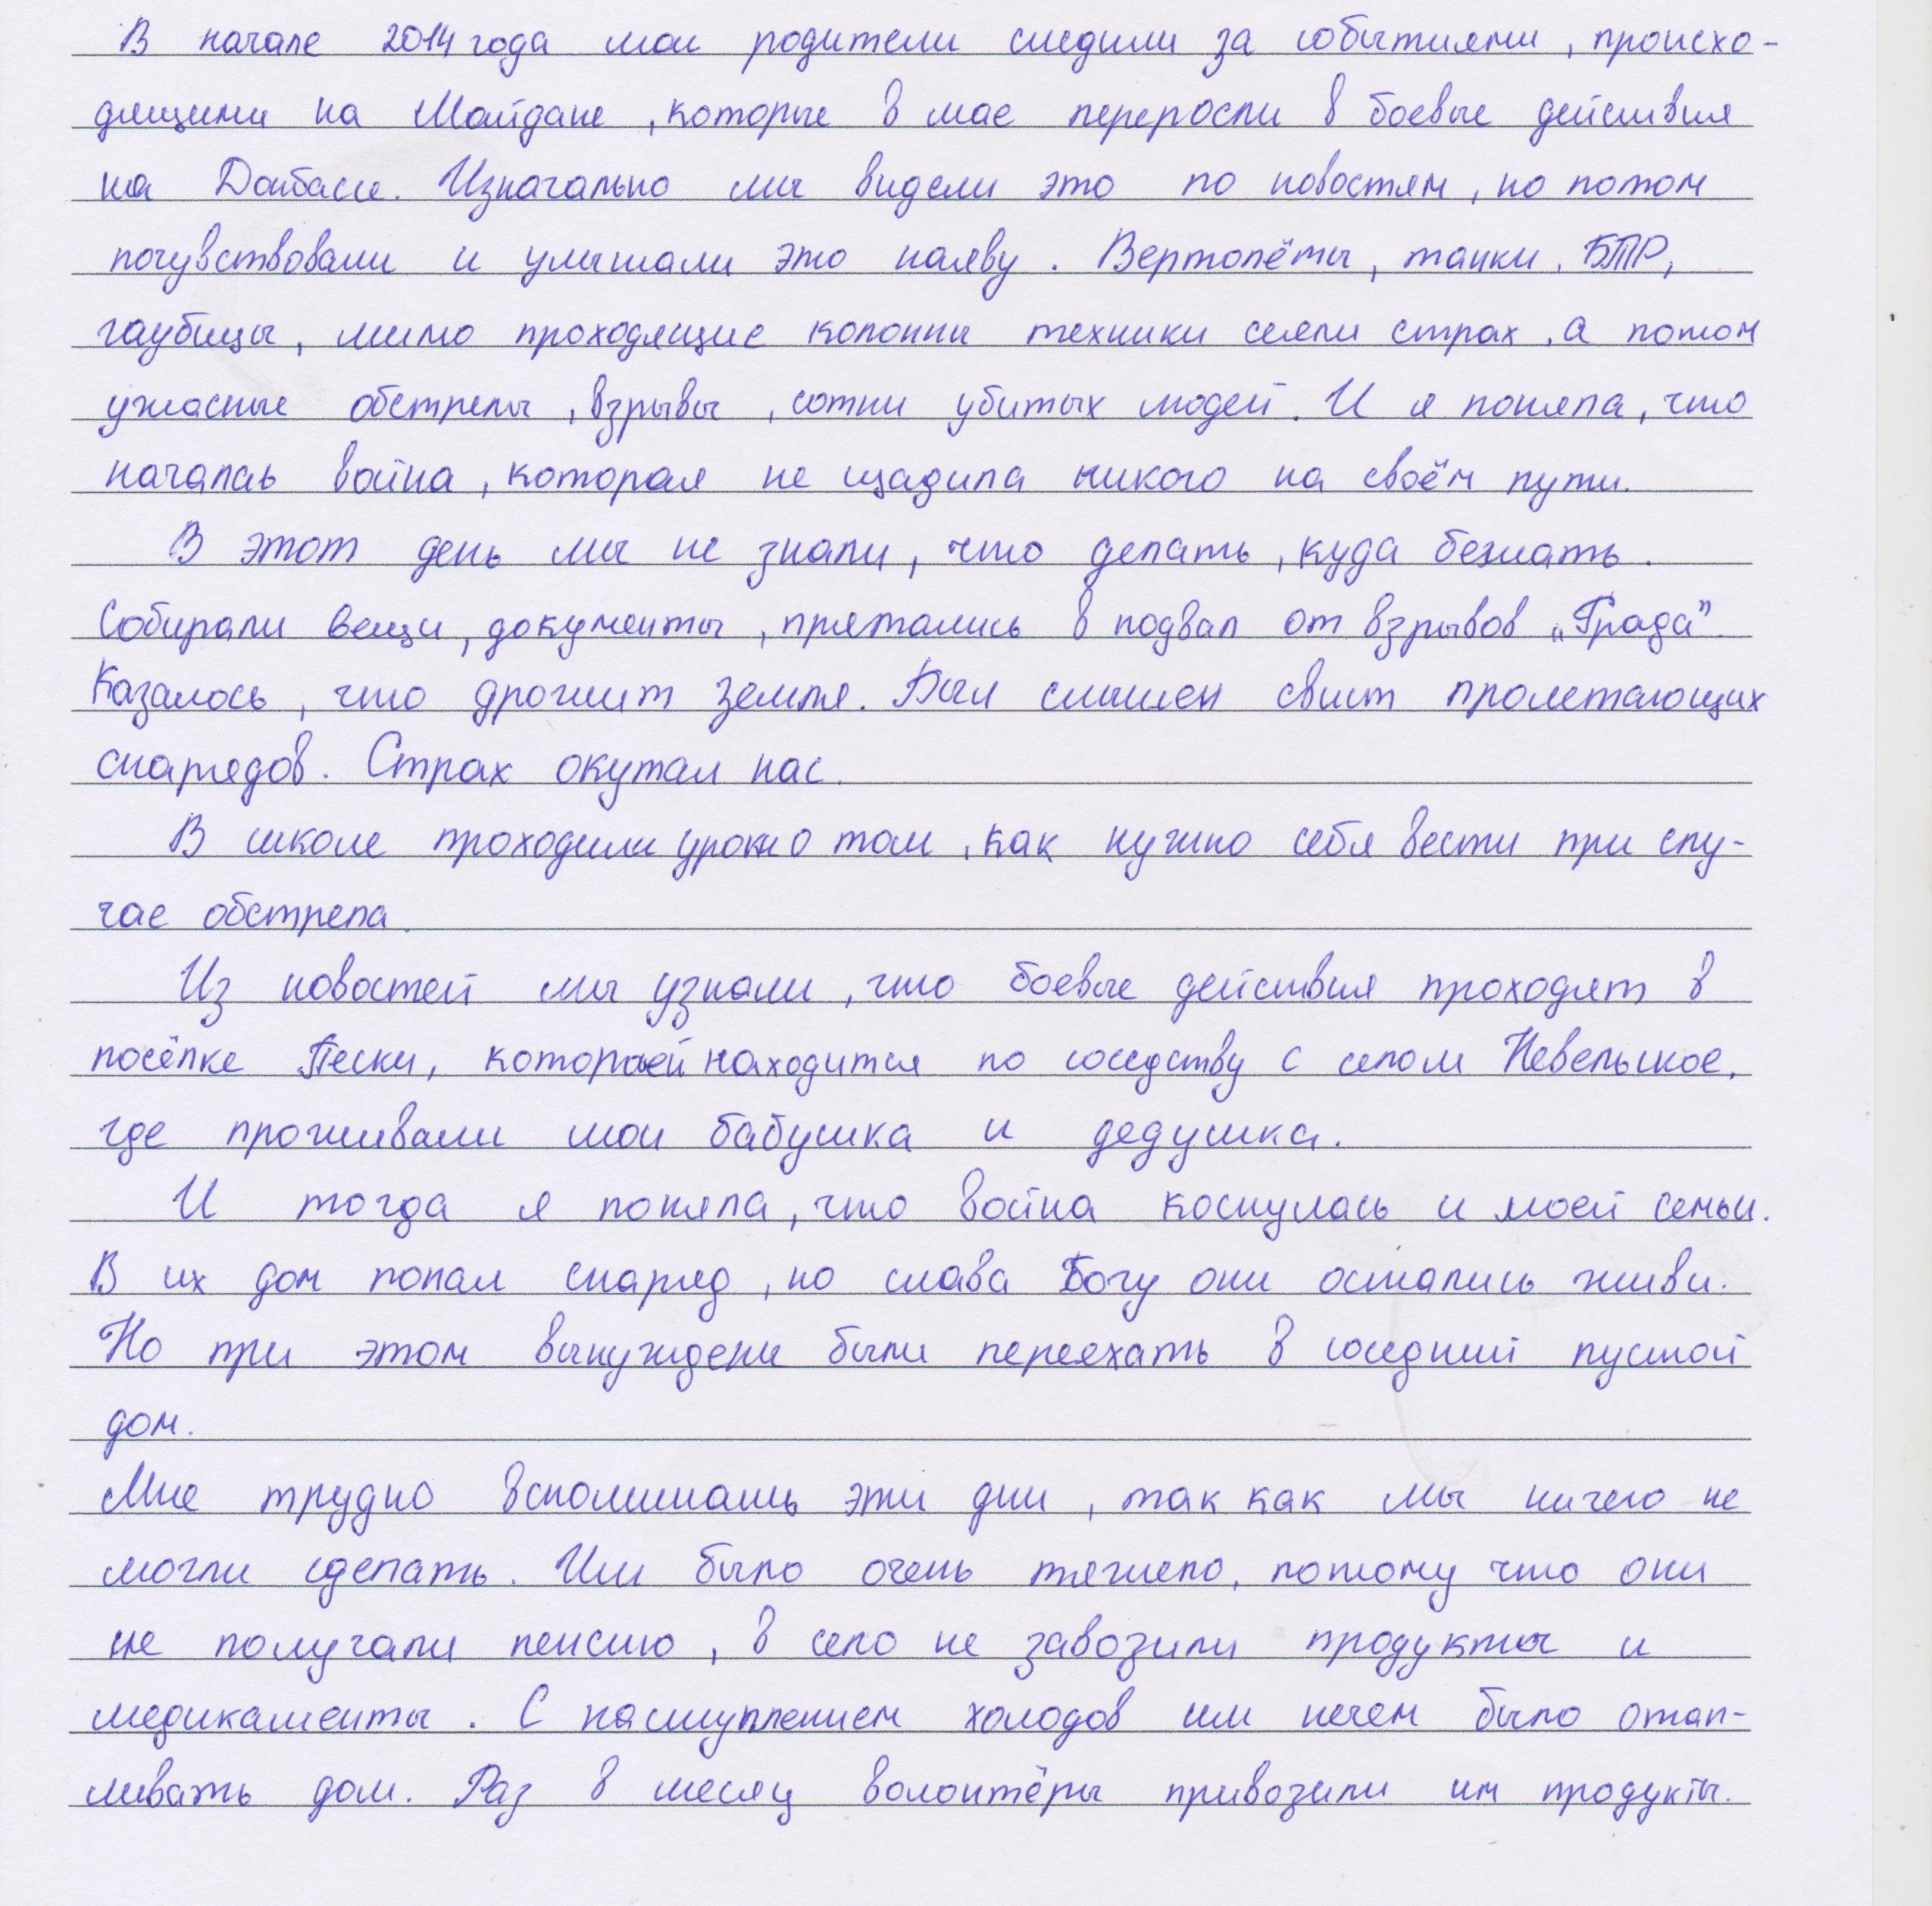 В начале 2014 года мои родители следили за событиями, происхо-
дящими на Майдане, которые в мае переросли в боевые действия
на Донбассе. Изначально мы видели это по новостям, но потом
почувствовали и услышали это наяву. Вертолёты, танки, БТР,
гаубицы, мимо проходящие колонны техники сеяли страх, а потом
ужасные обстрелы, взрывы, сотни убитых людей. И я поняла, что
началась война, которая не щадила никого на своём пути.
В этот день мы не знали, что делать, куда бежать.
Собирали вещи, документы, прятались в подвал от взрывов „Града”.
Казалось, что дрожит земля. Был слышен свист пролетающих
снарядов. Страх окутал нас.
В школе проходили уроки о том, как нужно себя вести при слу-
чае обстрела.
Из новостей мы узнали, что боевые действия проходят в
посёлке Пески, который находится по соседству с селом Невельское,
где проживали мои бабушка и дедушка.
И тогда я поняла, что война коснулась и моей семьи.
В их дом попал снаряд, но слава Богу они остались живы.
Но при этом вынуждены были переехать в соседний пустой
дом.
Мне трудно вспоминать эти дни, так как мы ничего не
могли сделать. Им было очень тяжело, потому что они
не получали пенсию, в село не завозили продукты и
медикаменты. С наступлением холодов им нечем было отап-
ливать дом. Раз в месяц волонтёры привозили им продукты.